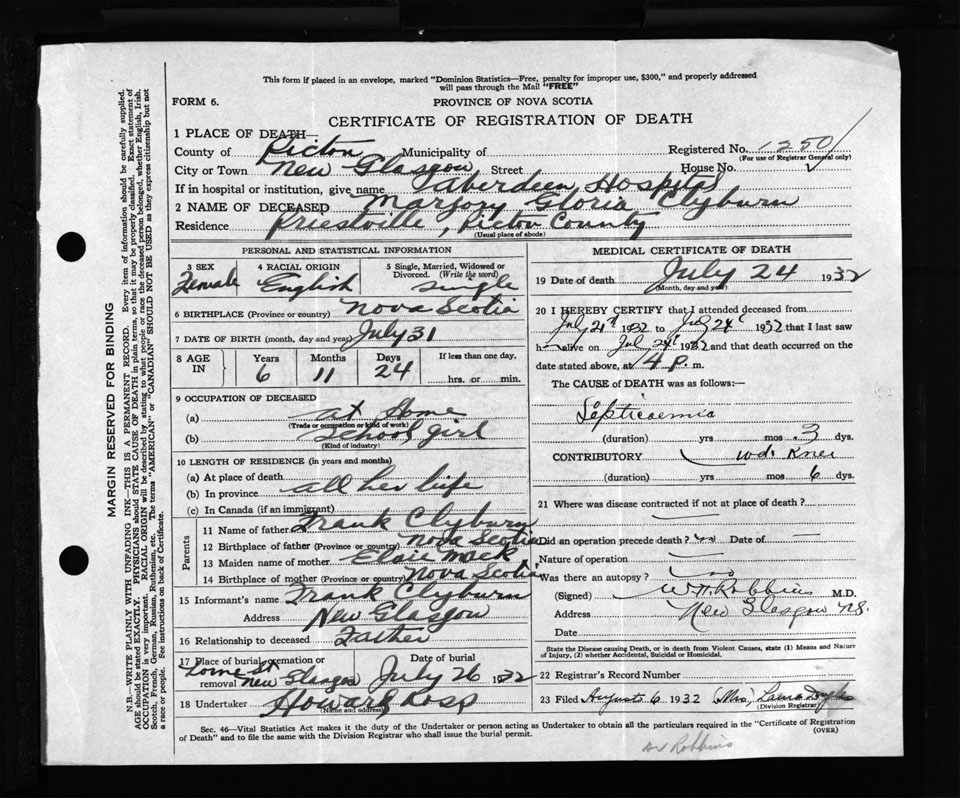 This form if placed in an envelope, marked "Dominion Statistics—Free, penalty for improper use, $300," and properly addressed
will pass through the Mail "FREE"
FORM 6.
PROVINCE OF NOVA SCOTIA
CERTIFICATE OF REGISTRATION OF DEATH
1 PLACE OF DEATH—
Registered No. 1250
(For use of Registrar General only)
County of Pictou Municipality of
City or Town New Glasgow Street House No.
If in hospital or institution, give name Aberdeen Hospital
2 NAME OF DECEASED Marjory Gloria Clyburn
Residence Priestville, Pictou County
(Usual place of abode)
PERSONAL AND STATISTICAL INFORMATION
3 SEX
Female
4 RACIAL ORIGIN
English
5 Single, Married, Widowed or
Divorced. (Write the word)
Single
6 BIRTHPLACE (Province or country) Nova Scotia
7 DATE OF BIRTH (month, day and year) July 31
8 AGE IN
Years 6
Months 11
Days 24
If less than one day,
hrs. or min.
9 OCCUPATION OF DECEASED
(a) at Home
(Trade or occupation or kind of work)
(b) School girl
(Kind of industry)
10 LENGTH OF RESIDENCE (in years and months)
(a) At place of death
(b) In province all her life
(c) In Canada (if an immigrant)
Parents
11 Name of father Frank Clyburn
12 Birthplace of father (Province or country) Nova Scotia
13 Maiden name of mother Elsie Mack
14 Birthplace of mother (Province or country) Nova Scotia
15 Informant's name Frank Clyburn
Address New Glasgow
16 Relationship to deceased Father
17 Place of burial, cremation or
removal Lorne St New Glasgow
Date of burial
July 26 1932
18 Undertaker Howard Ross
(Name and address)
MEDICAL CERTIFICATE OF DEATH
19 Date of death July 24 1932
(Month, day and year)
20 I HEREBY CERTIFY that I attended deceased from
July 21st 1932 to July 24 1932 that I last saw
h alive on July 24 1932 and that death occurred on the
date stated above, at 4 P. m.
The CAUSE of DEATH was as follows:—
Septicaemia
(duration) yrs mos 3 dys.
CONTRIBUTORY wd. Knee
(duration) yrs mos 6 dys.
21 Where was disease contracted if not at place of death?
Did an operation precede death? no Date of —
Nature of operation —
Was there an autopsy? no
(Signed) W.H. Robbins M.D.
Address New Glasgow N.S.
Date
State the Disease causing Death, or in death from Violent Causes, state (1) Means and Nature
of Injury, (2) whether Accidental, Suicidal or Homicidal.
22 Registrar's Record Number
23 Filed August 6 1932 (Mrs) Laura
(Division Registrar)
Sec. 46—Vital Statistics Act makes it the duty of the Undertaker or person acting as Undertaker to obtain all the particulars required in the "Certificate of Registration
of Death" and to file the same with the Division Registrar who shall issue the burial permit.
(OVER)
Dr Robbins
MARGIN RESERVED FOR BINDING
N.B.—WRITE PLAINLY WITH UNFADING INK—THIS IS A PERMANENT RECORD. Every item of information should be carefully supplied.
AGE should be stated EXACTLY. PHYSICIANS should STATE CAUSE OF DEATH in plain terms, so that it may be properly classified. Exact statement of
OCCUPATION is very important. RACIAL ORIGIN will be described by stating to what people or race the deceased person belonged, whether English, Irish,
Scotch, French, German, Russian, Ruthenian, etc. The terms "AMERICAN" or "CANADIAN" SHOULD NOT BE USED as they express citizenship but not
a race or people. See instructions on back of Certificate.